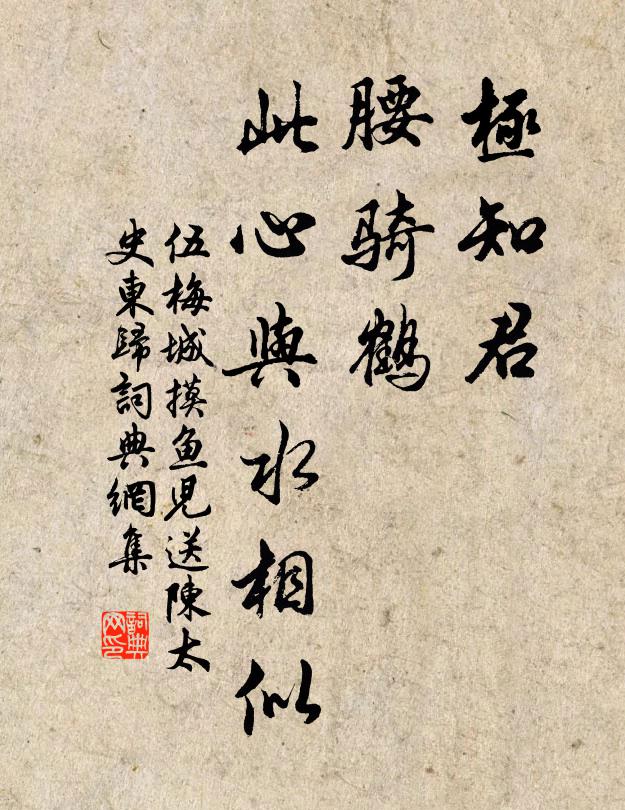 極知君
腰騎鶴
此心與水相似
伍梅城摸魚兒送陳太
史東歸詞典網集
詞典
网印